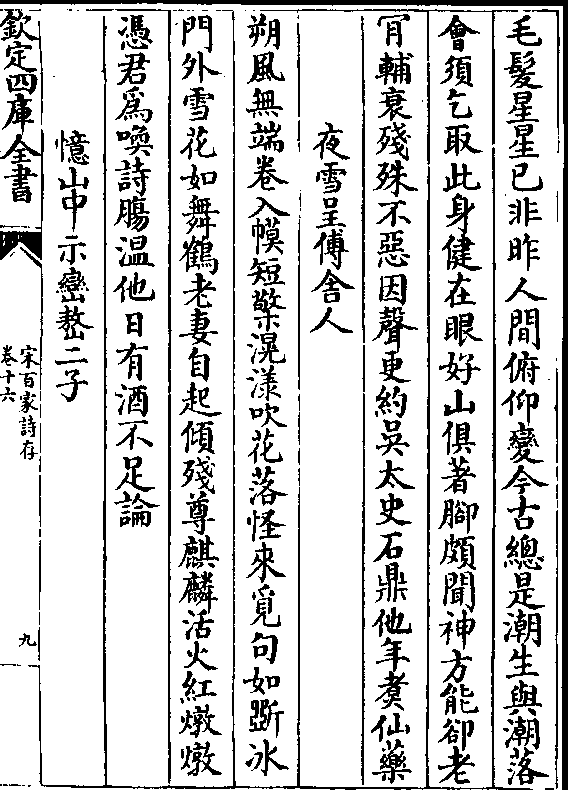 毛髮星星已非昨人間俯仰變今古總是潮生與潮落
會須乞取此身健在眼好山俱著腳頗聞神方能卻老
肎輔衰殘殊不惡因聲更約吳太史石鼎他年煑仙藥
夜雪呈傅舍人
朔風無端卷入幙短檠滉漾吹花落怪來覓句如斲冰
門外雪花如舞鶴老妻自起傾殘尊麒麟活火紅燉燉
憑君爲喚詩腸温他日有酒不足論
憶山中示巒嶅二子
欽定四庫全書
宋百家詩存
卷十六
九